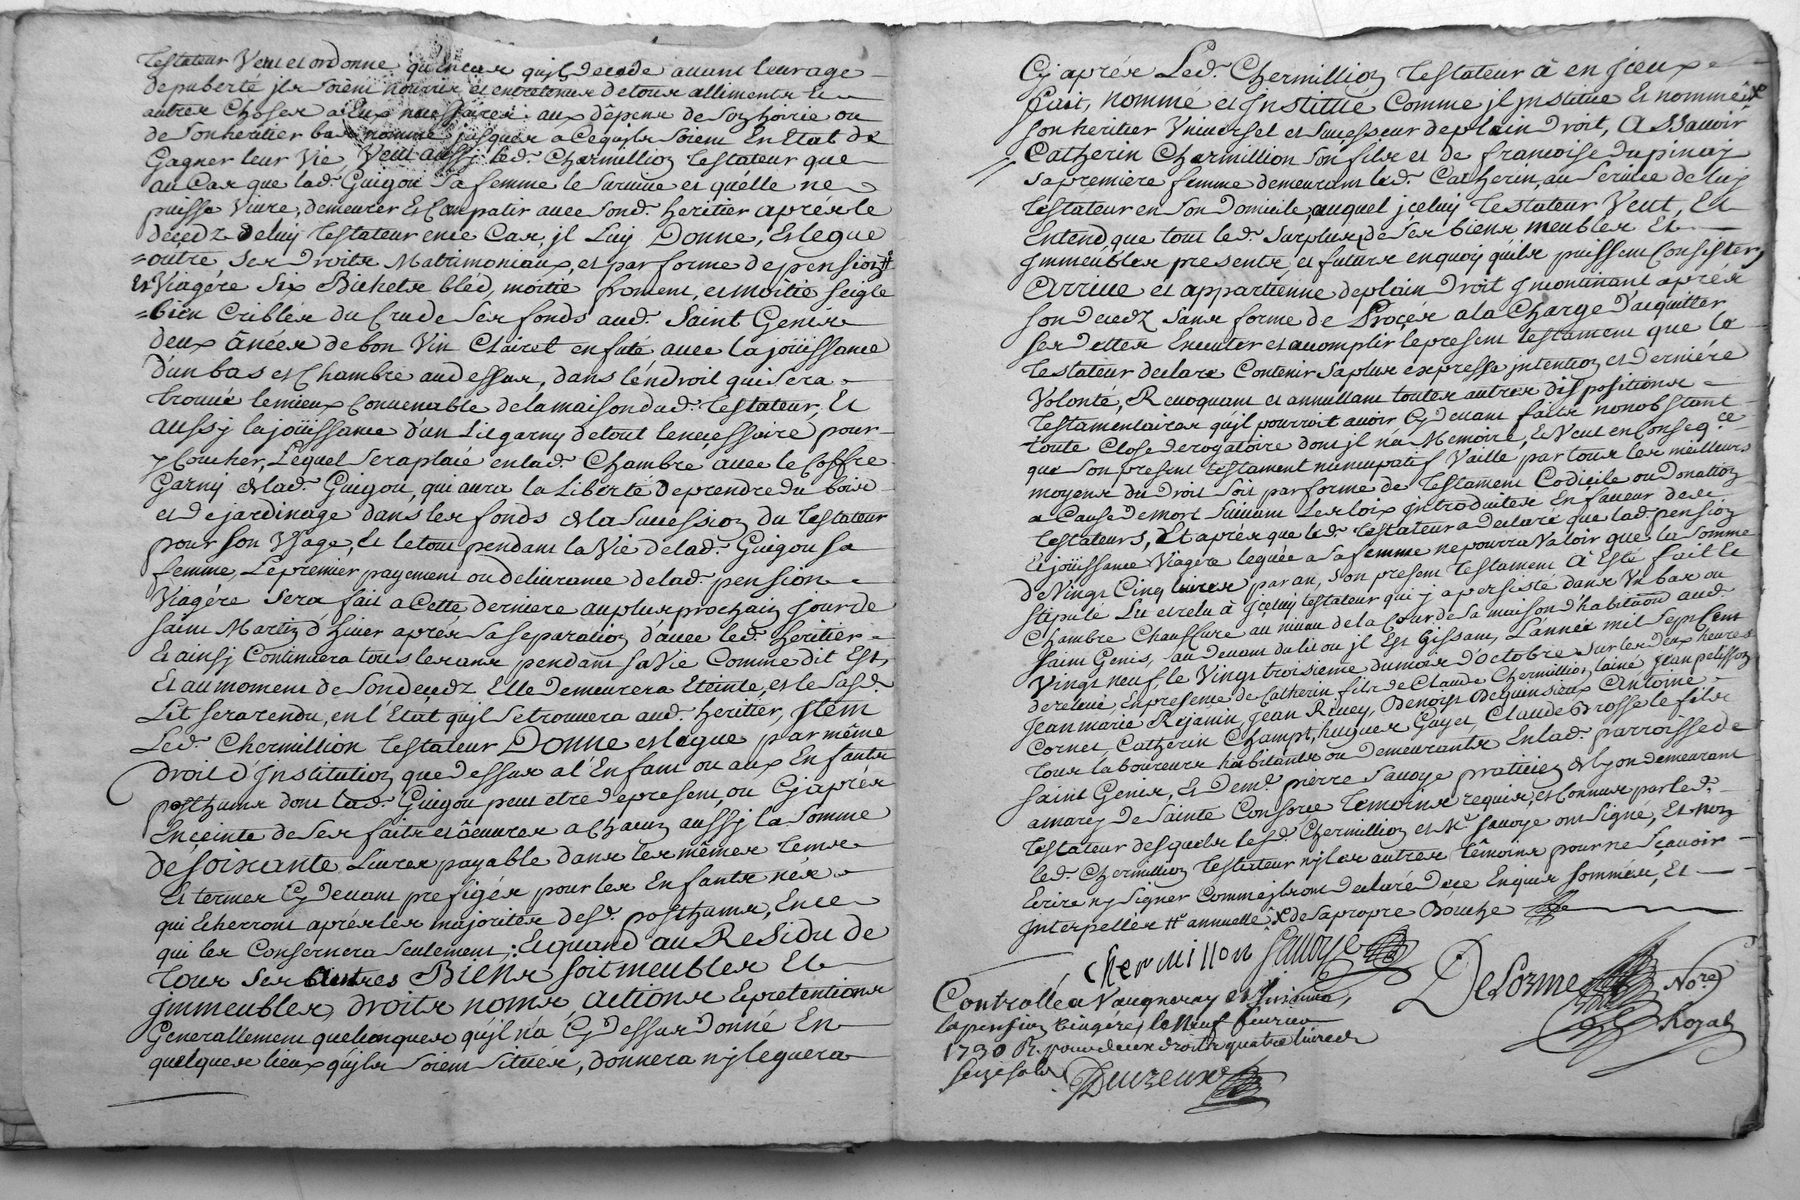 testateur Veut et ordonne qu'en cas qu'il decede avant leur age
de puberté ils soient nourris et entretenus de tous alliments et
autres choses a Eux necessaires aux dêpens de son hoirie ou
de son heritier bas nommé jusques a ce qu'ils soient En Etat de
Gagner leur Vie, Veut aussi led. Chermillion testateur que
au Cas que lad. Guigou sa femme le survive et qu'elle ne
puisse Vivre, demeurer et Compatir avec sond. heritier aprés le
decedz deluy testateur en ce Cas, il Luy Donne, et legue
=outre ses Droits Matrimoniaux, et par forme de pension #
et Viagére six Bichets bléd, moitié froment, et moitié seigle
=bien Cribles du Cru de ses fonds aud. Saint Genis
deux ânées de bon Vin Clairet en futé avec la joüissance
D'un bas et Chambre au dessus, dans l'éndroit qui sera
trouvé le mieux Convenable de la maison dud. testateur, Et
aussy la joüissance d'un Lit garny de tout le necessaire pour
y Coucher, Lequel sera placé en lad. Chambre avec le Coffre
Garny de lad. Guigou, qui aura la Liberté de prendre du bois
et de jardinage dans les fonds de la sucession du testateur
pour son Usage, Et le tout pendant la Vie de lad. Guigou sa
femme, Le prémier payement ou delivrance de lad. pension
Viagére sera fait a Cette derniere au plus prochain jour de
saint Martin d'hiver aprés sa separation d'avec led. heritier
Et ainsy Continuera tous les ans pendant sa Vie Comme dit Est,
Et au moment de son decedz Elle demeurera Eteinte, et le susd.
Lit sera rendu, en l'Etat qu'il se trouvera aud. heritier, Item
Led. Chermillion testateur Donne et legue par même
Droit d'Institution que dessus a l'Enfant ou aux Enfants
posthums dont lad. Guigou peut etre de present, ou Cy aprés
Enceinte de ses faits et oeuvres a Chacun aussy la somme
de soixante Livres payable dans les mêmes tems
Et termes Cy devant prefigés pour les Enfants nés
qui Echerront aprés les majorités desd. posthums, En ce
qui les Consernera seulement; Et quand au Residu de
tous ses autres Biens soit meubles Et
Immeubles, droits noms actions Et pretentions
Generallement quelconques qu'il n'a Cy dessus donné En
quelques lieux qu'ils soient situés, donnera ny leguera
Cy aprés Led. Chermillion testateur â en jceux
fait, nommé et Institué Comme jl jnstitue et nomme
son heritier Universel et sucesseur de plain Droit, Assavoir
Catherin Chermillion son fils et de francoise dupinay
sa premiere femme demeurant led. Catherin, au service de luy
testateur en son Domicile, auquel jceluy testateur Veut, Et
Entend, que tout led. surplus de ses biens meubles Et
jmmeubles presents, et futurs en quoy qu'ils puissent Consister,
arrive et appartienne de plain Droit Incontinant aprés
son decedz sans forme de Procés a la Charge d'acquitter
ses dettes Executer et acomplir le present testament que le
testateur declare Contenir sa plus expresse intention et derniére
Volonté, Revoquant et annullant toutes autres disspositions
testamentaires qu'il pourroit avoir Cy devant faits nonobstant
toute Close derogatoire dont jl n'a Memoire, Et Veut en Conseq.ce
que son present testament nuncupatif Vaille par tous les meilleurs
moyens du Droit soit par forme de testament Codicile ou Donation
a Cause de mort suivant Les loix jntroduites En faveur des
testateurs, Et aprés que led. testateur a declaré que lad. pension
Et joüissance Viagére leguée a sa femme ne pourra Valoir que la somme
de Vingt Cinq livres par an, son present testament A Eté fait Et
stipulé Lû et relu â jceluy testateur qui y a persisté dans Un bas ou
Chambre Chauffure au niveau de la Cour de sa maison d'habitaõn aud.
saint Genis, au devant du lit ou jl Est Gissant, L'année mil sept cent
Vingt neuf, le Vingt troisieme du mois d'octobre sur les deux heures
de relevé, En presence de Catherin fils de Claude Chermillion lainé jean pelisson
Jean marie Rejanin, Jean Rivey, Benoist Dequinsieux Antoine
Cornet, Catherin Champt, hugues Gayet Claude Brosse le fils
tous laboureurs habitants ou demeurants En lad. parroisse de
saint Genis, Et dem. pierre Savoye praticien de lyon demeurant
amarcy de Sainte Consorce temoins requis, et Connus par led.
testateur desquels led. Chermillion et M. Savoye ont signé, Et non
led. Chermillion testateur ny les autres têmoins pour ne sçavoir
Ecrire ny signer Comme jls ont declaré de ce Enquis sommés, Et
Interpellés # annuelle x de sa propre Bouche
Chermillon Savoye
Delorme No.re
Royal
Controllé a Vaugneray et Insinué
la pension viagére, le Neuf fevrier
1730 R. pour deux droits quatre livres
seize sols